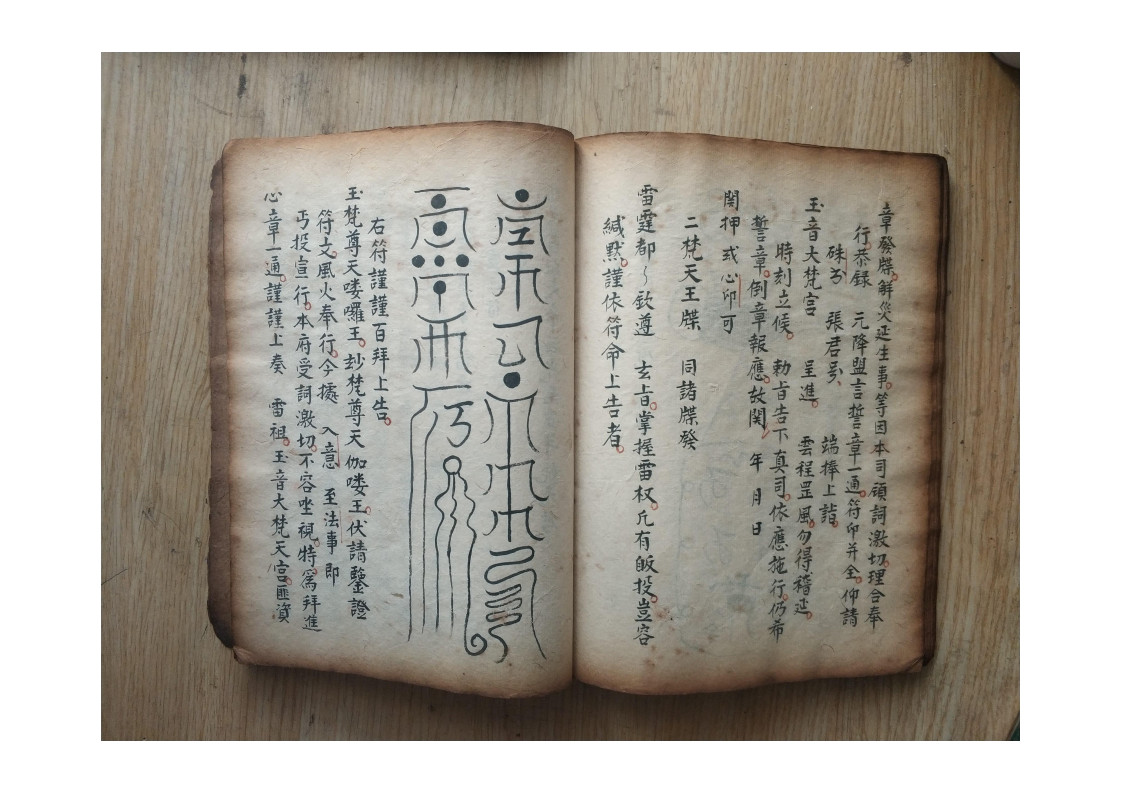 章發牒解災延生事等因本司頒詞激切理合奉
行恭録 元降盟言誓章一通符印并全仰請
硃書 張君号 端捧上詣
玉音大梵宫 呈進 雲程罡風勿得稽延
時刻立候 勅旨告下真司依應施行仍希
誓章倒章報應故関 年 月 日
関押或心印可
二梵天王牒 同諸牒發
雷霆都〻欽遵 玄旨掌握雷权凢有皈投豈容
緘默謹依符命上告者
右符謹謹百拜上告
玉梵尊天喽囉王玅梵尊天伽喽王伏請鑒證
符文風火奉行今據 入意 至法事即
丐投宣行本府受詞激切不容坐視特爲拜進
心章一通謹謹上奏 雷祖玉音大梵天宫匪資